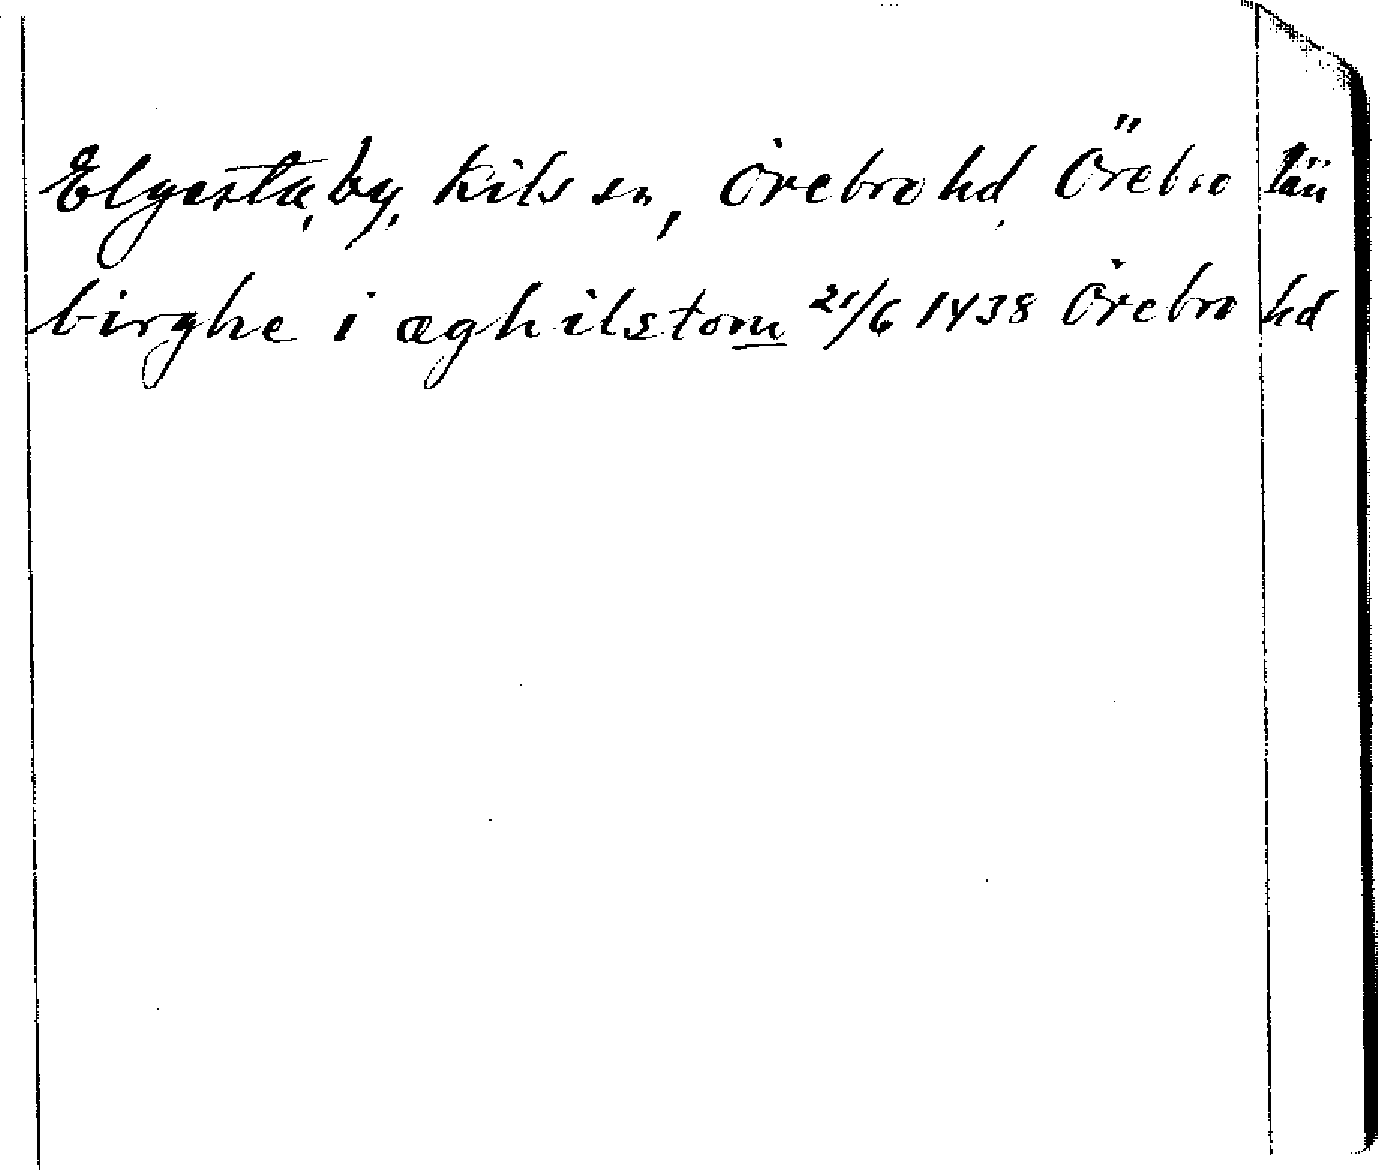 Elgesta, by, Kils sn, Örebro hd, Örebro län
birghe i æghilstom 21/6 1438 Örebro hd